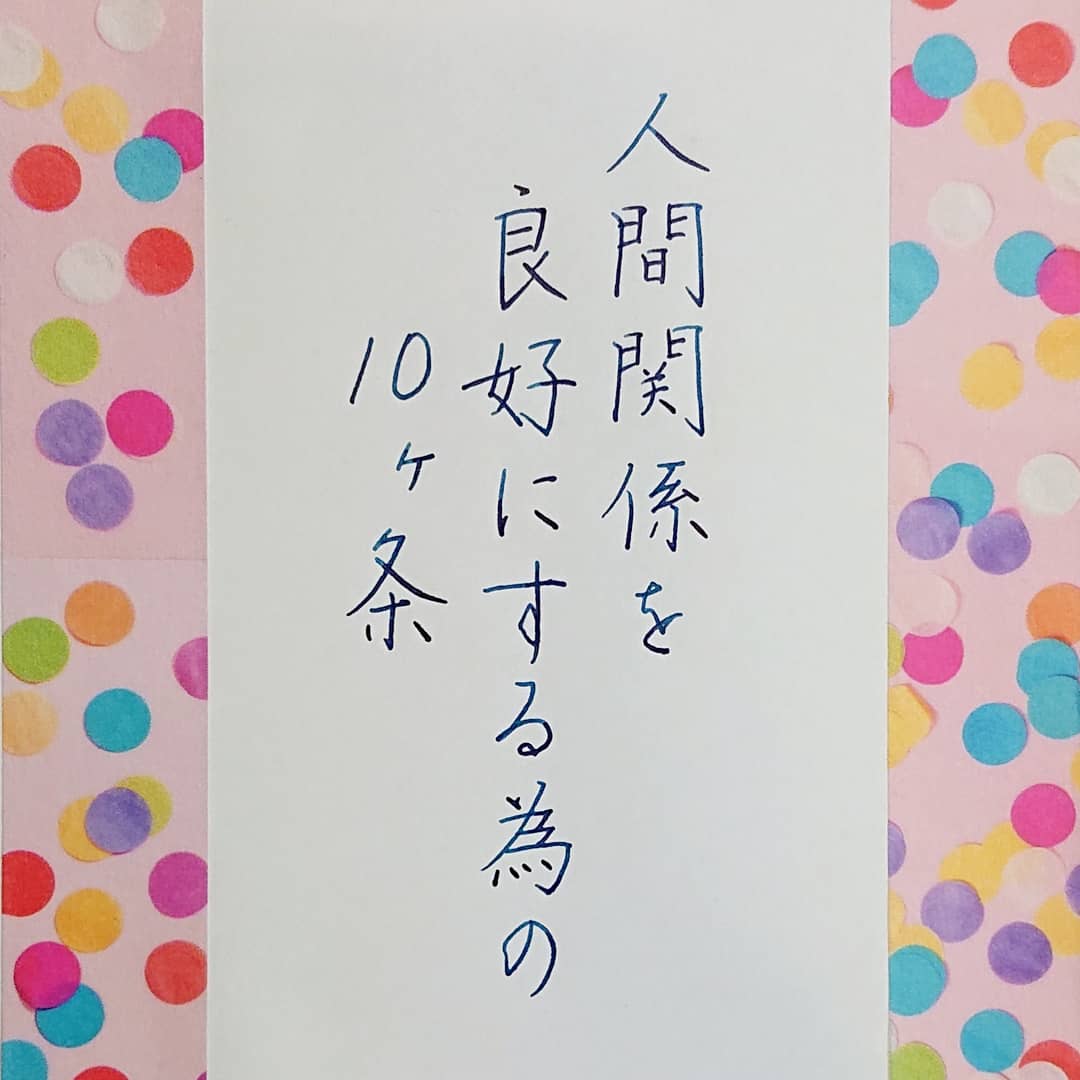 人間関係を
良好にする為の
10ヶ条